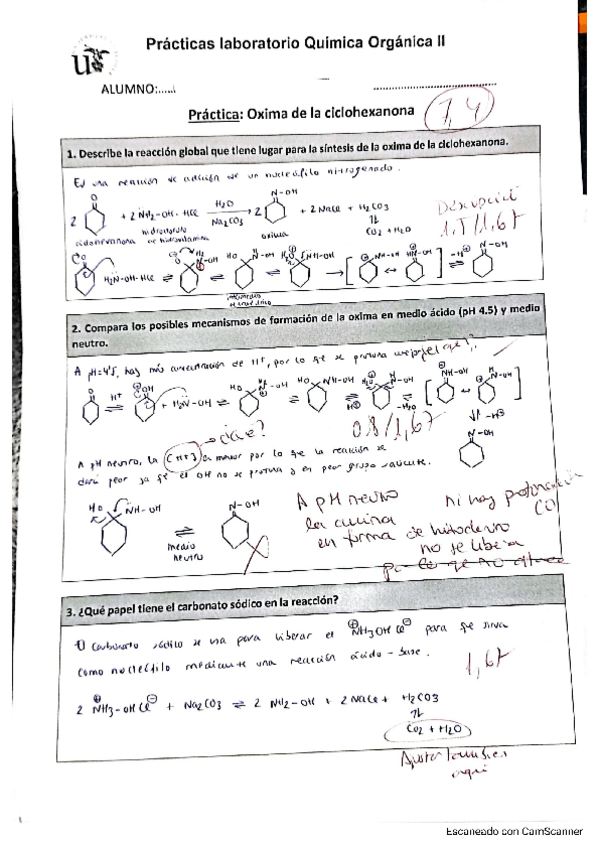 Prácticas laboratorio Química Orgánica II
us
ALUMNO:.....
Práctica: Oxima de la ciclohexanona
7,4
1. Describe la reacción global que tiene lugar para la síntesis de la oxima de la ciclohexanona.
Es una reacción de adición de un nucleófilo nitrogenado.
2 + 2 NH2-OH · HCl H2O Na2CO3 2 N-OH + 2 NaCl + H2CO3
CO2 + H2O
ciclohexanona hidrocloruro de hidroxilamina oxima
Descripción
1.5/1,67
2. Compara los posibles mecanismos de formación de la oxima en medio ácido (pH 4.5) y medio
neutro.
A pH=4'5, hay más concentración de H+, por lo que se protona mejor el
qué?
0.8/1,67
¿cuál?
A pH neutro, la [H+] es menor por lo que la reacción se
dará peor ya que el OH no se protona y es peor grupo saliente.
HO NH-OH N-OH
medio
neutro
A pH neutro
en forma de
no se libera
por lo que no
3. ¿Qué papel tiene el carbonato sódico en la reacción?
El carbonato sódico se usa para liberar el NH3OH Cl para que sirva
como nucleófilo mediante una reacción ácido-base.
1,67
2 NH3-OH Cl + Na2CO3 ⇌ 2 NH2-OH + 2 NaCl + H2CO3
CO2 + H2O
Ajustar también
aquí
Escaneado con CamScanner